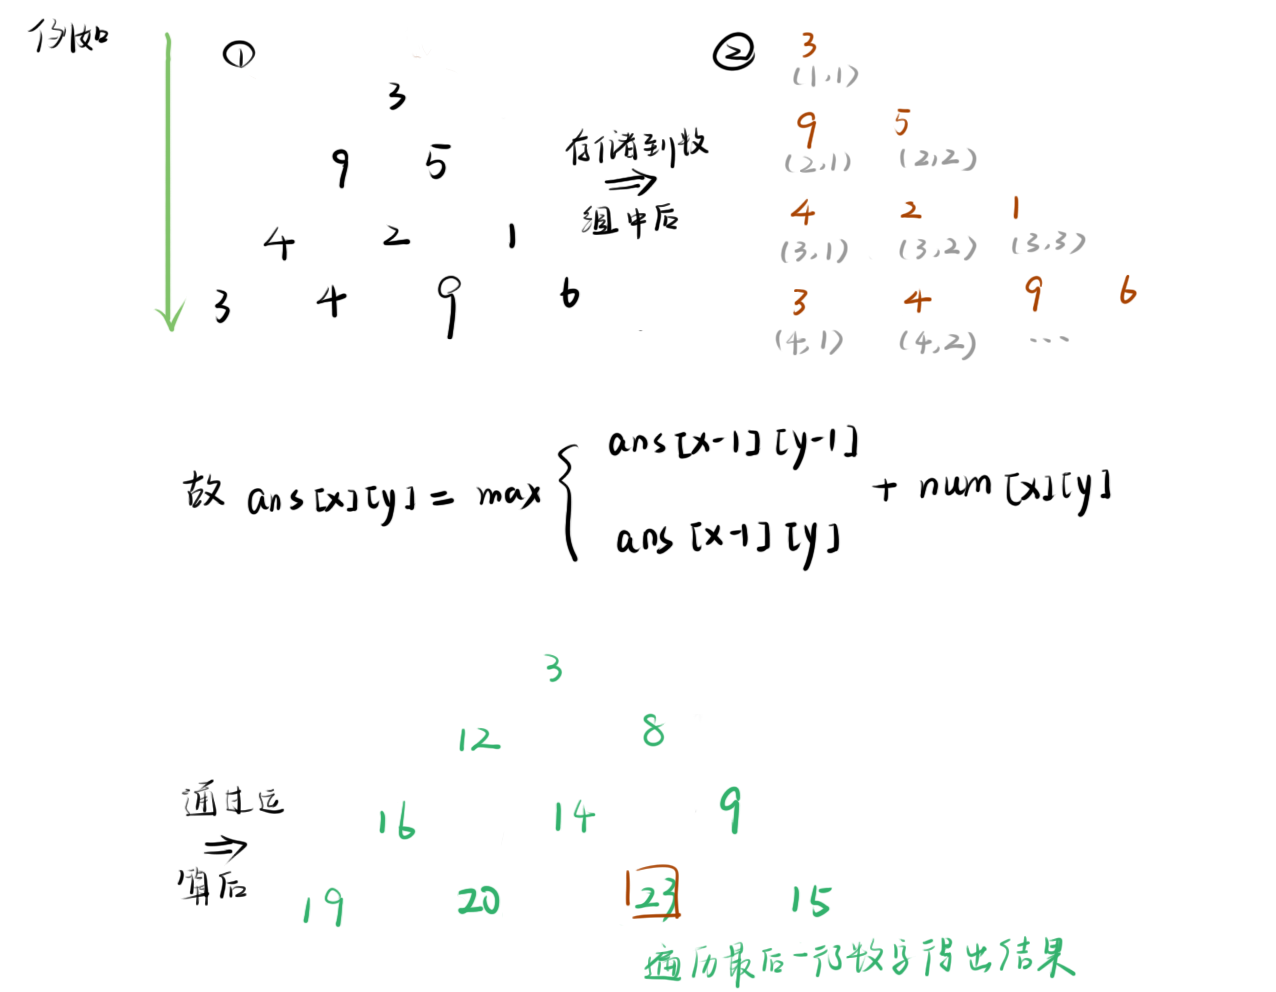 例如
①
3
9 5
4 2 1
3 4 9 6
存储到数
⇒
组中后
②
3
(1,1)
9 5
(2,1) (2,2)
4 2 1
(3,1) (3,2) (3,3)
3 4 9 6
(4,1) (4,2) ...
故 ans[x][y] = max { ans[x-1][y-1]
ans[x-1][y] + num[x][y]
通过运
⇒
算后
3
12 8
16 14 9
19 20 23 15
遍历最后一行数字得出结果